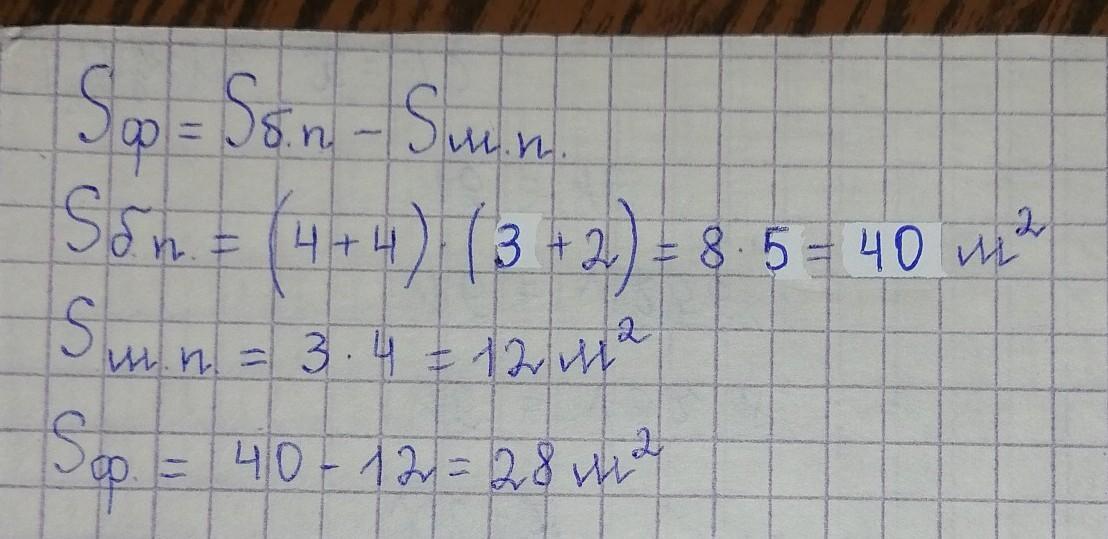 Sф = Sб.п – Sм.п.
Sб.п. = (4+4)·(3+2) = 8·5 = 40 м²
Sм.п. = 3·4 = 12 м²
Sф. = 40 – 12 = 28 м²